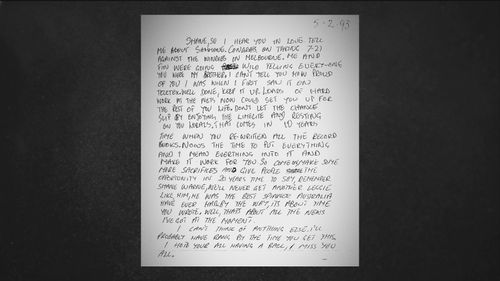 5-2.93
SHANE, SO I HEAR YOU IN LOVE TELL
ME ABOUT SIMMONE. CONGRATS ON TAKING 7-21
AGAINST THE WINDIES IN MELBOURNE. ME AND
TIM WERE GOING WILD TELLING EVERYONE
YOU WERE MY BROTHER. I CAN'T TELL YOU HOW PROUD
OF YOU I WAS WHEN I FIRST SAW IT ON
TELETEX. WELL DONE, KEEP IT UP. LOADS OF HARD
WORK AT THE NETS NOW COULD SET YOU UP FOR
THE REST OF YOU LIFE. DON'T LET THE CHANCE
SLIP BY ENJOYING THE LIMELITE AND RESTING
ON YOU LORALS, THAT COMES IN 10 YEARS
TIME WHEN YOU RE-WRITEN ALL THE RECORD
BOOKS. NOWS THE TIME TO PUT EVERYTHING
AND I MEAN EVERTHING INTO IT AND
MAKE IT WORK FOR YOU SO COME ON MAKE SOME
MORE SACRIFICES AND GIVE PEOPLE THE
OPORTUNITY IN 20 YEARS TIME TO SAY, REMEMBER
SHANE WARNE, WE'LL NEVER GET ANOTHER LEGGIE
LIKE HIM, HE WAS THE BEST SPINNER AUSTRALIA
HAVE EVER HAD. BY THE WAY, ITS ABOUT TIME
YOU WROTE. WELL, THAT'S ABOUT ALL THE NEWS
I'VE GOT AT THE MOMENT.
I CAN'T THINK OF ANYTHING ELSE. I'LL
PROBABLY HAVE RANG BY THE TIME YOU GET THIS.
I HOPE YOUR ALL HAVING A BALL, I MISS YOU
ALL.